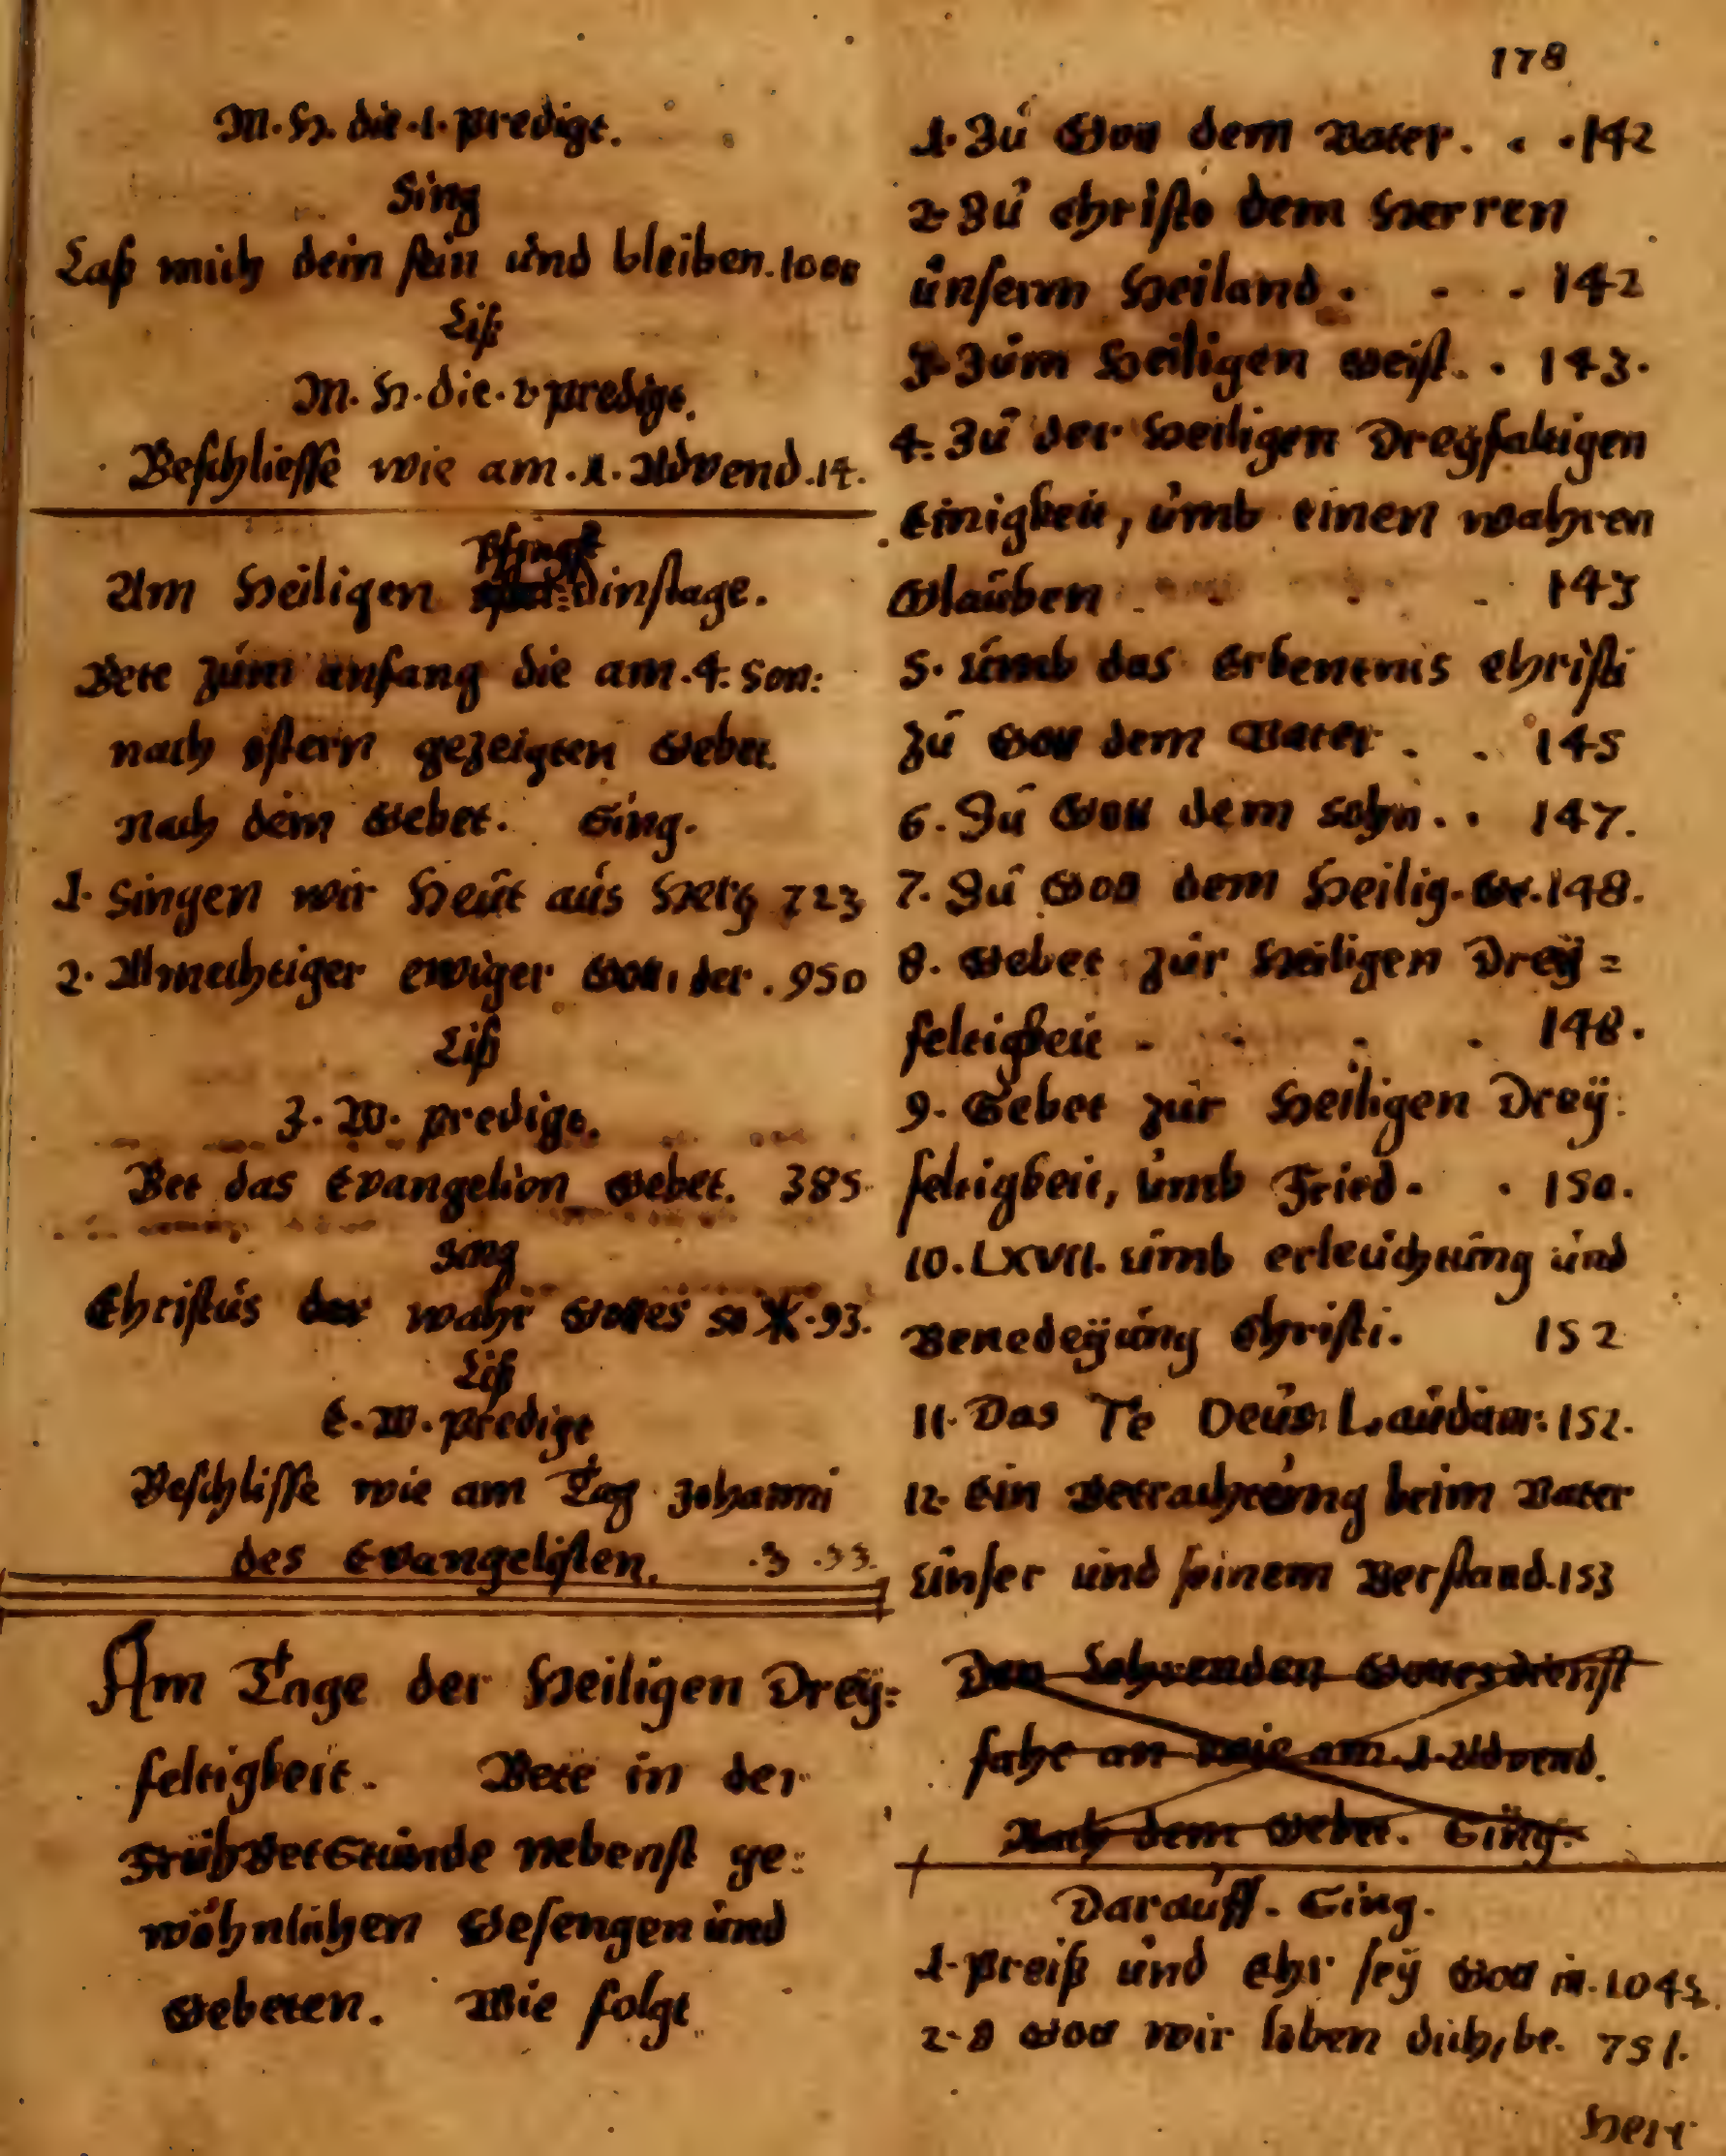 178
M. H. die .1. predigt.
Sing
Laß mich dein sein und bleiben. 1000
Liß
M. H. die. 2 predigt.
Beschliesse wie am .1. Advend. 14.
Pfingst
Am Heiligen Dinstage.
Bete zum anfang die am .4. Son:
nach ostern gezeigten Gebet.
nach dem Gebet. Sing.
1. Singen wir Heut aus Hertz 723
2. Allmechtiger ewiger Gott, der. 950
Liß
3. W. predigt.
Bet das Evangelion Gebet. 385
Sing
Christus der wahr Gottes 93.
Liß
E. W. predigt
Beschlisse wie am Tag Johanni
des Evangelisten. .3 .33.
Am Tage der Heiligen Drey:
feltigkeit. Bete in der
FrühBetStunde nebenst ge:
wöhnlichen Gesengen und
Gebeten. Wie folgt
1. Zu Gott dem Vater. 142
2. Zu Christo dem Herren
unserm Heiland. 142
3. Zum Heiligen Geist. 143.
4. Zu der Heiligen Dreyfaltigen
Einigkeit, umb einen wahren
Glauben 143
5. umb das Erkentnis Christi
zu Gott dem Vater. 145
6. Zu Gott dem Sohn. 147.
7. Zu Gott dem Heilig. Ge. 148.
8. Gebet zur Heiligen Drey=
feltigkeit 148.
9. Gebet zur Heiligen Drey:
feltigkeit, umb Fried. 150.
10. LXVII. umb erleuchtung und
Benedeyung Christi. 152
11. Das Te Deum Laudam: 152.
12. Ein Betrachtung beim Vater
unser und seinem Verstand. 153
Den Lehrenden Gottesdienst
fahe an wie am .1. Advend.
Nach dem Gebet. Sing.
Darauff. Sing.
1. Preiß und Ehr sey Gott in. 1045
2. O Gott wir loben dich, be. 751.
Herr